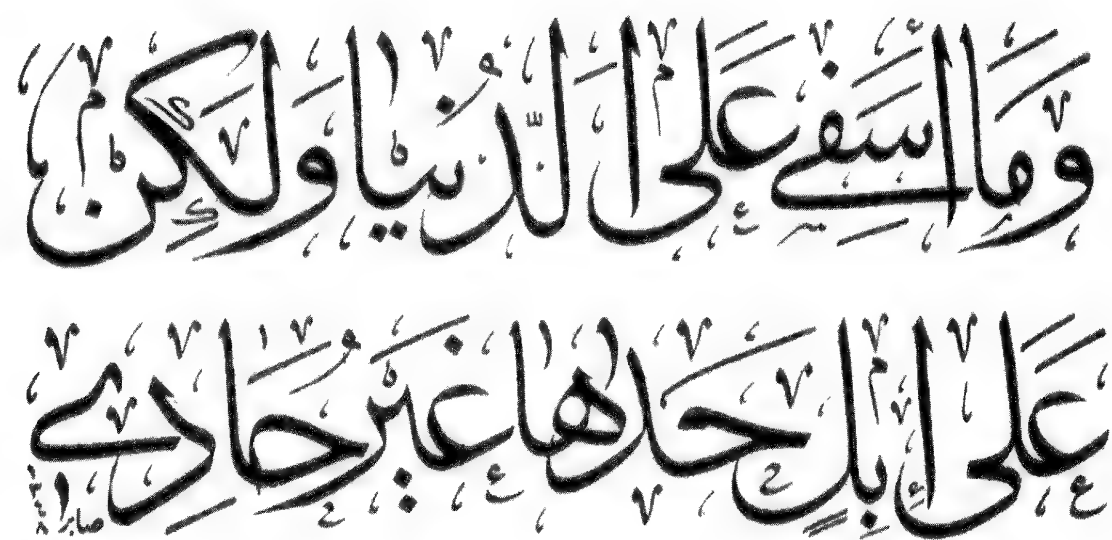 وَمَا أَسَفِي عَلَى الدُّنْيَا وَلَٰكِنْ
عَلَى إِبِلٍ حَدَاهَا غَيْرُ حَادِي
صابر